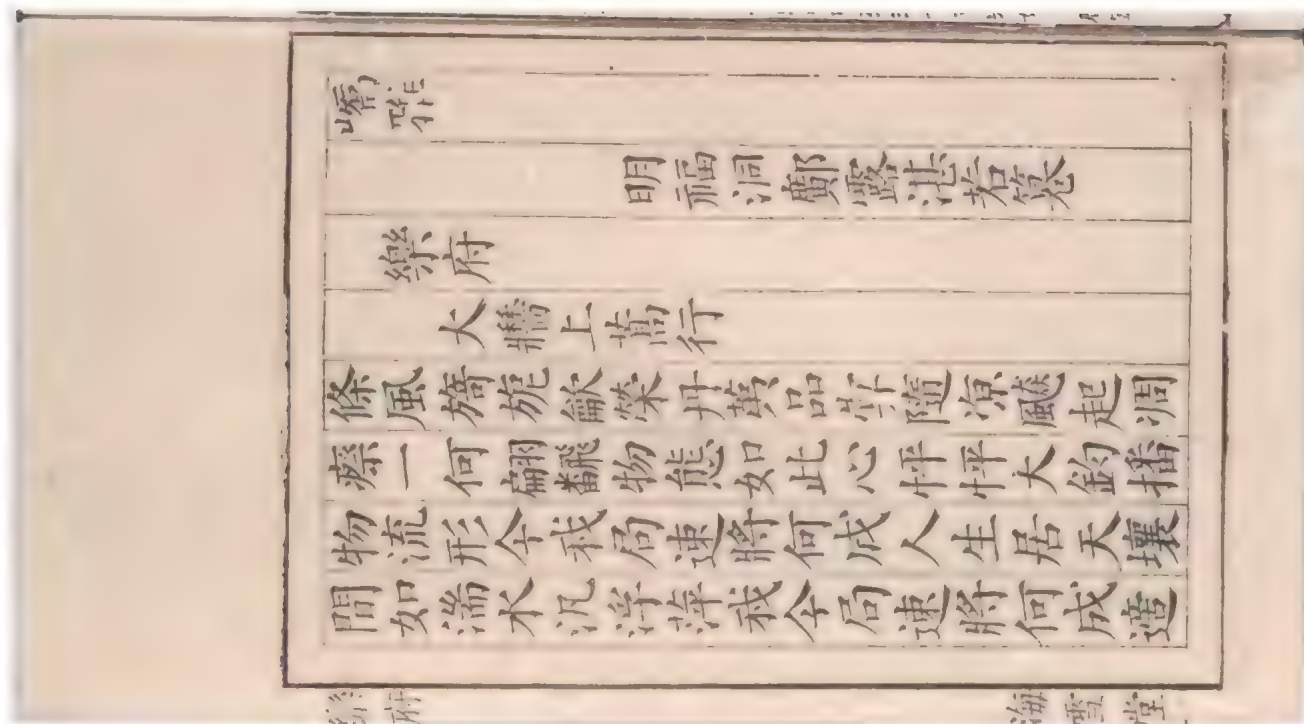 嶠雅
明福洞鄺露湛若篹
樂府
大牆上蒿行
條風旖旎歙榮丹萬品隨凉飈起凋
瘵一何翩翻物態如此心怦怦大鈞播
物流形今我局速將何成人生居天壤
間如湍水汎浮萍我今局速將何成造
樂府
海雪堂